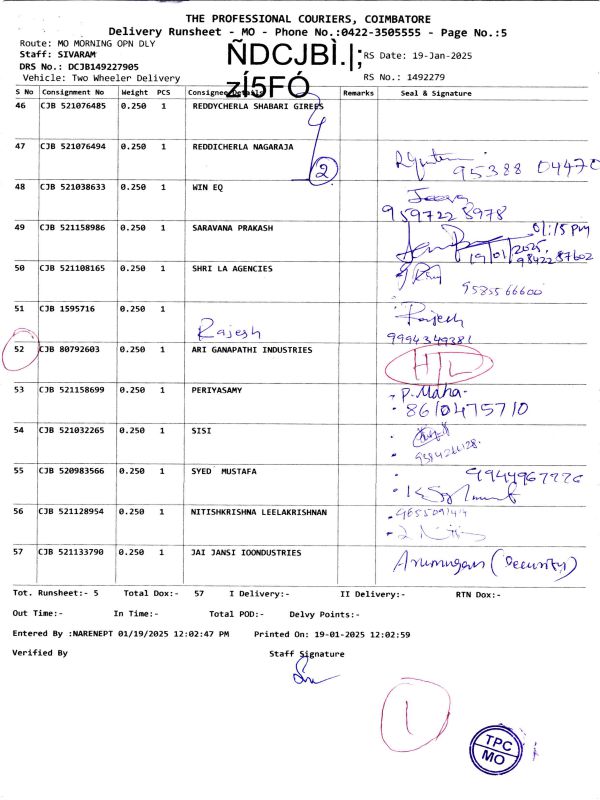 THE PROFESSIONAL COURIERS, COIMBATORE
Delivery Runsheet - MO - Phone No.:0422-3505555 - Page No.:5
Route: MO MORNING OPN DLY
Staff: SIVARAM
ÑDCJBÌ.|;
RS Date: 19-Jan-2025
DRS No.: DCJB149227905
Vehicle: Two Wheeler Delivery
zÍ5FÓ
RS No.: 1492279
S No Consignment No Weight PCS Consignee Details Remarks Seal & Signature
46 CJB 521076485 0.250 1 REDDYCHERLA SHABARI GIREES
47 CJB 521076494 0.250 1 REDDICHERLA NAGARAJA
2
95388 04470
48 CJB 521038633 0.250 1 WIN EQ
9597228978
49 CJB 521158986 0.250 1 SARAVANA PRAKASH
01:15 pm
19/01/2025.
9842287602
50 CJB 521108165 0.250 1 SHRI LA AGENCIES
9585566600
51 CJB 1595716 0.250 1
Rajesh
Rajesh
9994349381
52 CJB 80792603 0.250 1 ARI GANAPATHI INDUSTRIES
H/L
53 CJB 521158699 0.250 1 PERIYASAMY
P. Maha
8610475710
54 CJB 521032265 0.250 1 SISI
55 CJB 520983566 0.250 1 SYED MUSTAFA
56 CJB 521128954 0.250 1 NITISHKRISHNA LEELAKRISHNAN
57 CJB 521133790 0.250 1 JAI JANSI IOONDUSTRIES
Arumugam (Security)
Tot. Runsheet:- 5 Total Dox:- 57 I Delivery:- II Delivery:- RTN Dox:-
Out Time:- In Time:- Total POD:- Delvy Points:-
Entered By :NARENEPT 01/19/2025 12:02:47 PM Printed On: 19-01-2025 12:02:59
Verified By Staff Signature
1
TPC
MO